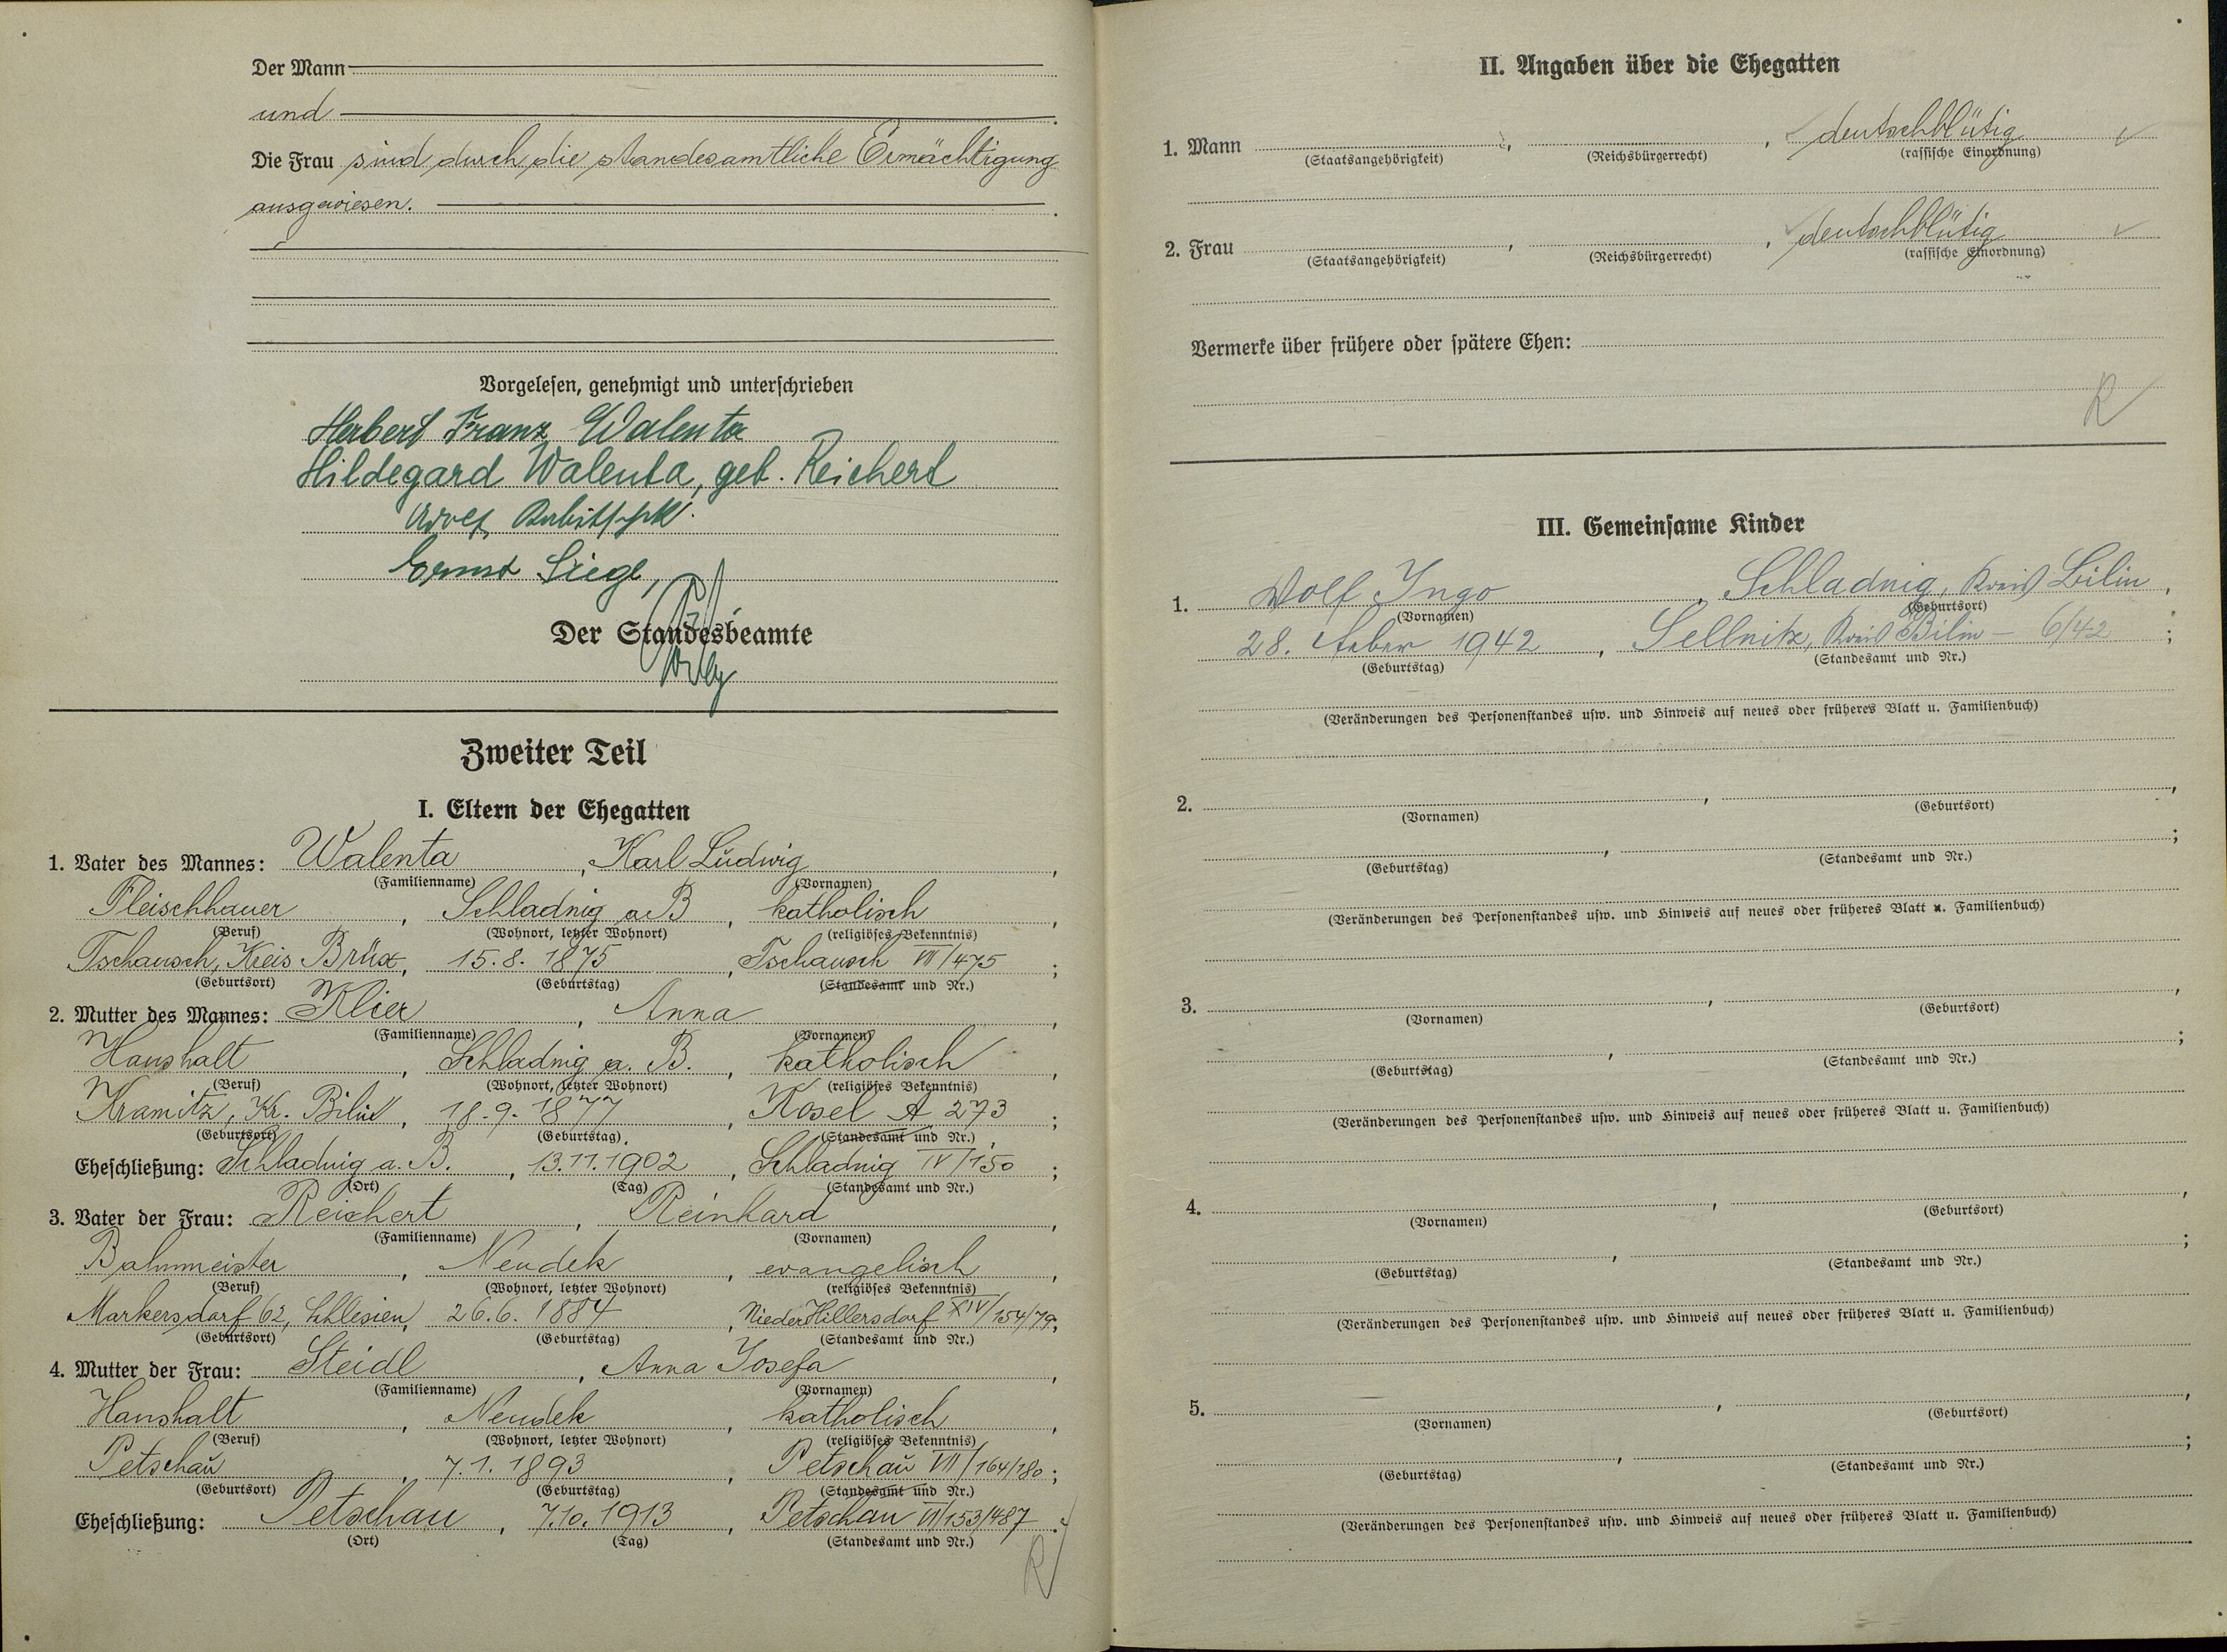 Der Mann
und
Die Frau sind durch die standesamtliche Ermächtigung
ausgewiesen.
Vorgelesen, genehmigt und unterschrieben
Herbert Franz Walenta
Hildegard Walenta, geb. Reichert
Ernst Siege,
Der Standesbeamte
Zweiter Teil
I. Eltern der Ehegatten
1. Vater des Mannes: Walenta, Karl Ludwig,
(Familienname) (Vornamen)
Fleischhauer, Schladnig a B, katholisch,
(Beruf) (Wohnort, letzter Wohnort) (religiöses Bekenntnis)
Tschausch, Kreis Brüx, 15.8.1875, Tschausch VII/475;
(Geburtsort) (Geburtstag) (Standesamt und Nr.)
2. Mutter des Mannes: Klier, Anna,
(Familienname) (Vornamen)
Haushalt, Schladnig a. B., katholisch,
(Beruf) (Wohnort, letzter Wohnort) (religiöses Bekenntnis)
Kramitz, Kr. Bilin, 18.9.1877, Kosel A 273;
(Geburtsort) (Geburtstag) (Standesamt und Nr.)
Eheschließung: Schladnig a. B., 13.11.1902, Schladnig IV/150;
(Ort) (Tag) (Standesamt und Nr.)
3. Vater der Frau: Reichert, Reinhard,
(Familienname) (Vornamen)
Bahnmeister, Neudek, evangelisch,
(Beruf) (Wohnort, letzter Wohnort) (religiöses Bekenntnis)
Markersdorf 62, Schlesien, 26.6.1884, Nieder Hillersdorf XIV/154/79;
(Geburtsort) (Geburtstag) (Standesamt und Nr.)
4. Mutter der Frau: Steidl, Anna Josefa,
(Familienname) (Vornamen)
Haushalt, Neudek, katholisch,
(Beruf) (Wohnort, letzter Wohnort) (religiöses Bekenntnis)
Petschau, 7.1.1893, Petschau VII/164/180;
(Geburtsort) (Geburtstag) (Standesamt und Nr.)
Eheschließung: Petschau, 7.10.1913, Petschau VI/153/487.
(Ort) (Tag) (Standesamt und Nr.)
R
II. Angaben über die Ehegatten
1. Mann , , deutschblütig
(Staatsangehörigkeit) (Reichsbürgerrecht) (rassische Einordnung)
2. Frau , , deutschblütig
(Staatsangehörigkeit) (Reichsbürgerrecht) (rassische Einordnung)
Vermerke über frühere oder spätere Ehen:
R
III. Gemeinsame Kinder
1. Wolf Ingo, Schladnig, Kreis Bilin,
(Vornamen) (Geburtsort)
28. Feber 1942, Sellnitz, Kreis Bilin – 6/42;
(Geburtstag) (Standesamt und Nr.)
(Veränderungen des Personenstandes usw. und Hinweis auf neues oder früheres Blatt u. Familienbuch)
2. , ,
(Vornamen) (Geburtsort)
, ;
(Geburtstag) (Standesamt und Nr.)
(Veränderungen des Personenstandes usw. und Hinweis auf neues oder früheres Blatt u. Familienbuch)
3. , ,
(Vornamen) (Geburtsort)
, ;
(Geburtstag) (Standesamt und Nr.)
(Veränderungen des Personenstandes usw. und Hinweis auf neues oder früheres Blatt u. Familienbuch)
4. , ,
(Vornamen) (Geburtsort)
, ;
(Geburtstag) (Standesamt und Nr.)
(Veränderungen des Personenstandes usw. und Hinweis auf neues oder früheres Blatt u. Familienbuch)
5. , ,
(Vornamen) (Geburtsort)
, ;
(Geburtstag) (Standesamt und Nr.)
(Veränderungen des Personenstandes usw. und Hinweis auf neues oder früheres Blatt u. Familienbuch)